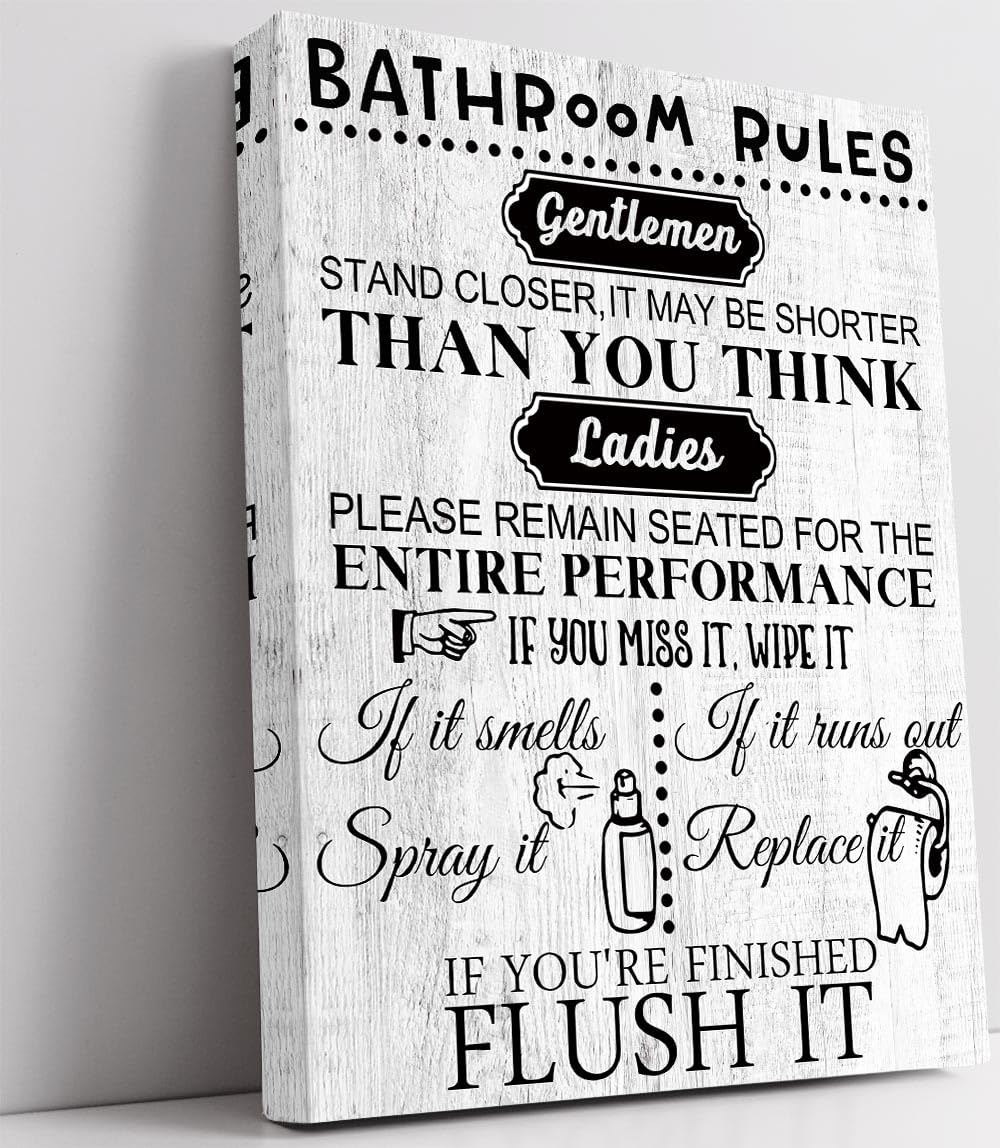 BATHROOM RULES
Gentlemen
STAND CLOSER, IT MAY BE SHORTER
THAN YOU THINK
Ladies
PLEASE REMAIN SEATED FOR THE
ENTIRE PERFORMANCE
IF YOU MISS IT, WIPE IT
If it smells
If it runs out
Spray it
Replace it
IF YOU'RE FINISHED
FLUSH IT